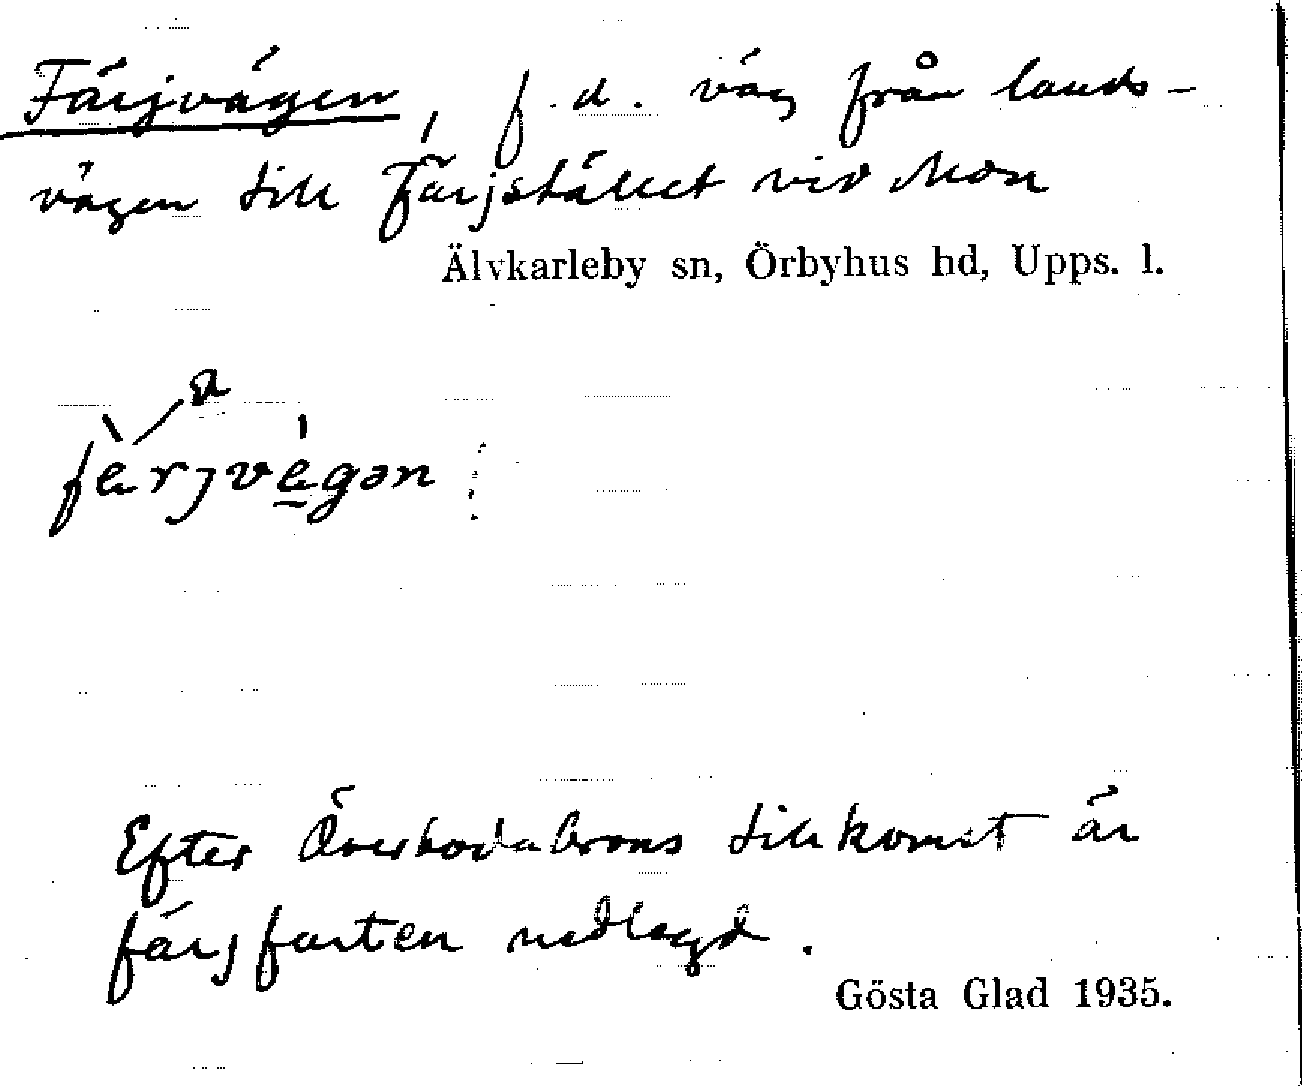 Färjvägen, f.d. väg från lands-
vägen till Färjstället vid Mon
Älvkarleby sn, Örbyhus hd, Upps. l.
a
färjvägən
Efter Överbodabrons tillkomst är
färjfarten nedlagd.
Gösta Glad 1935.